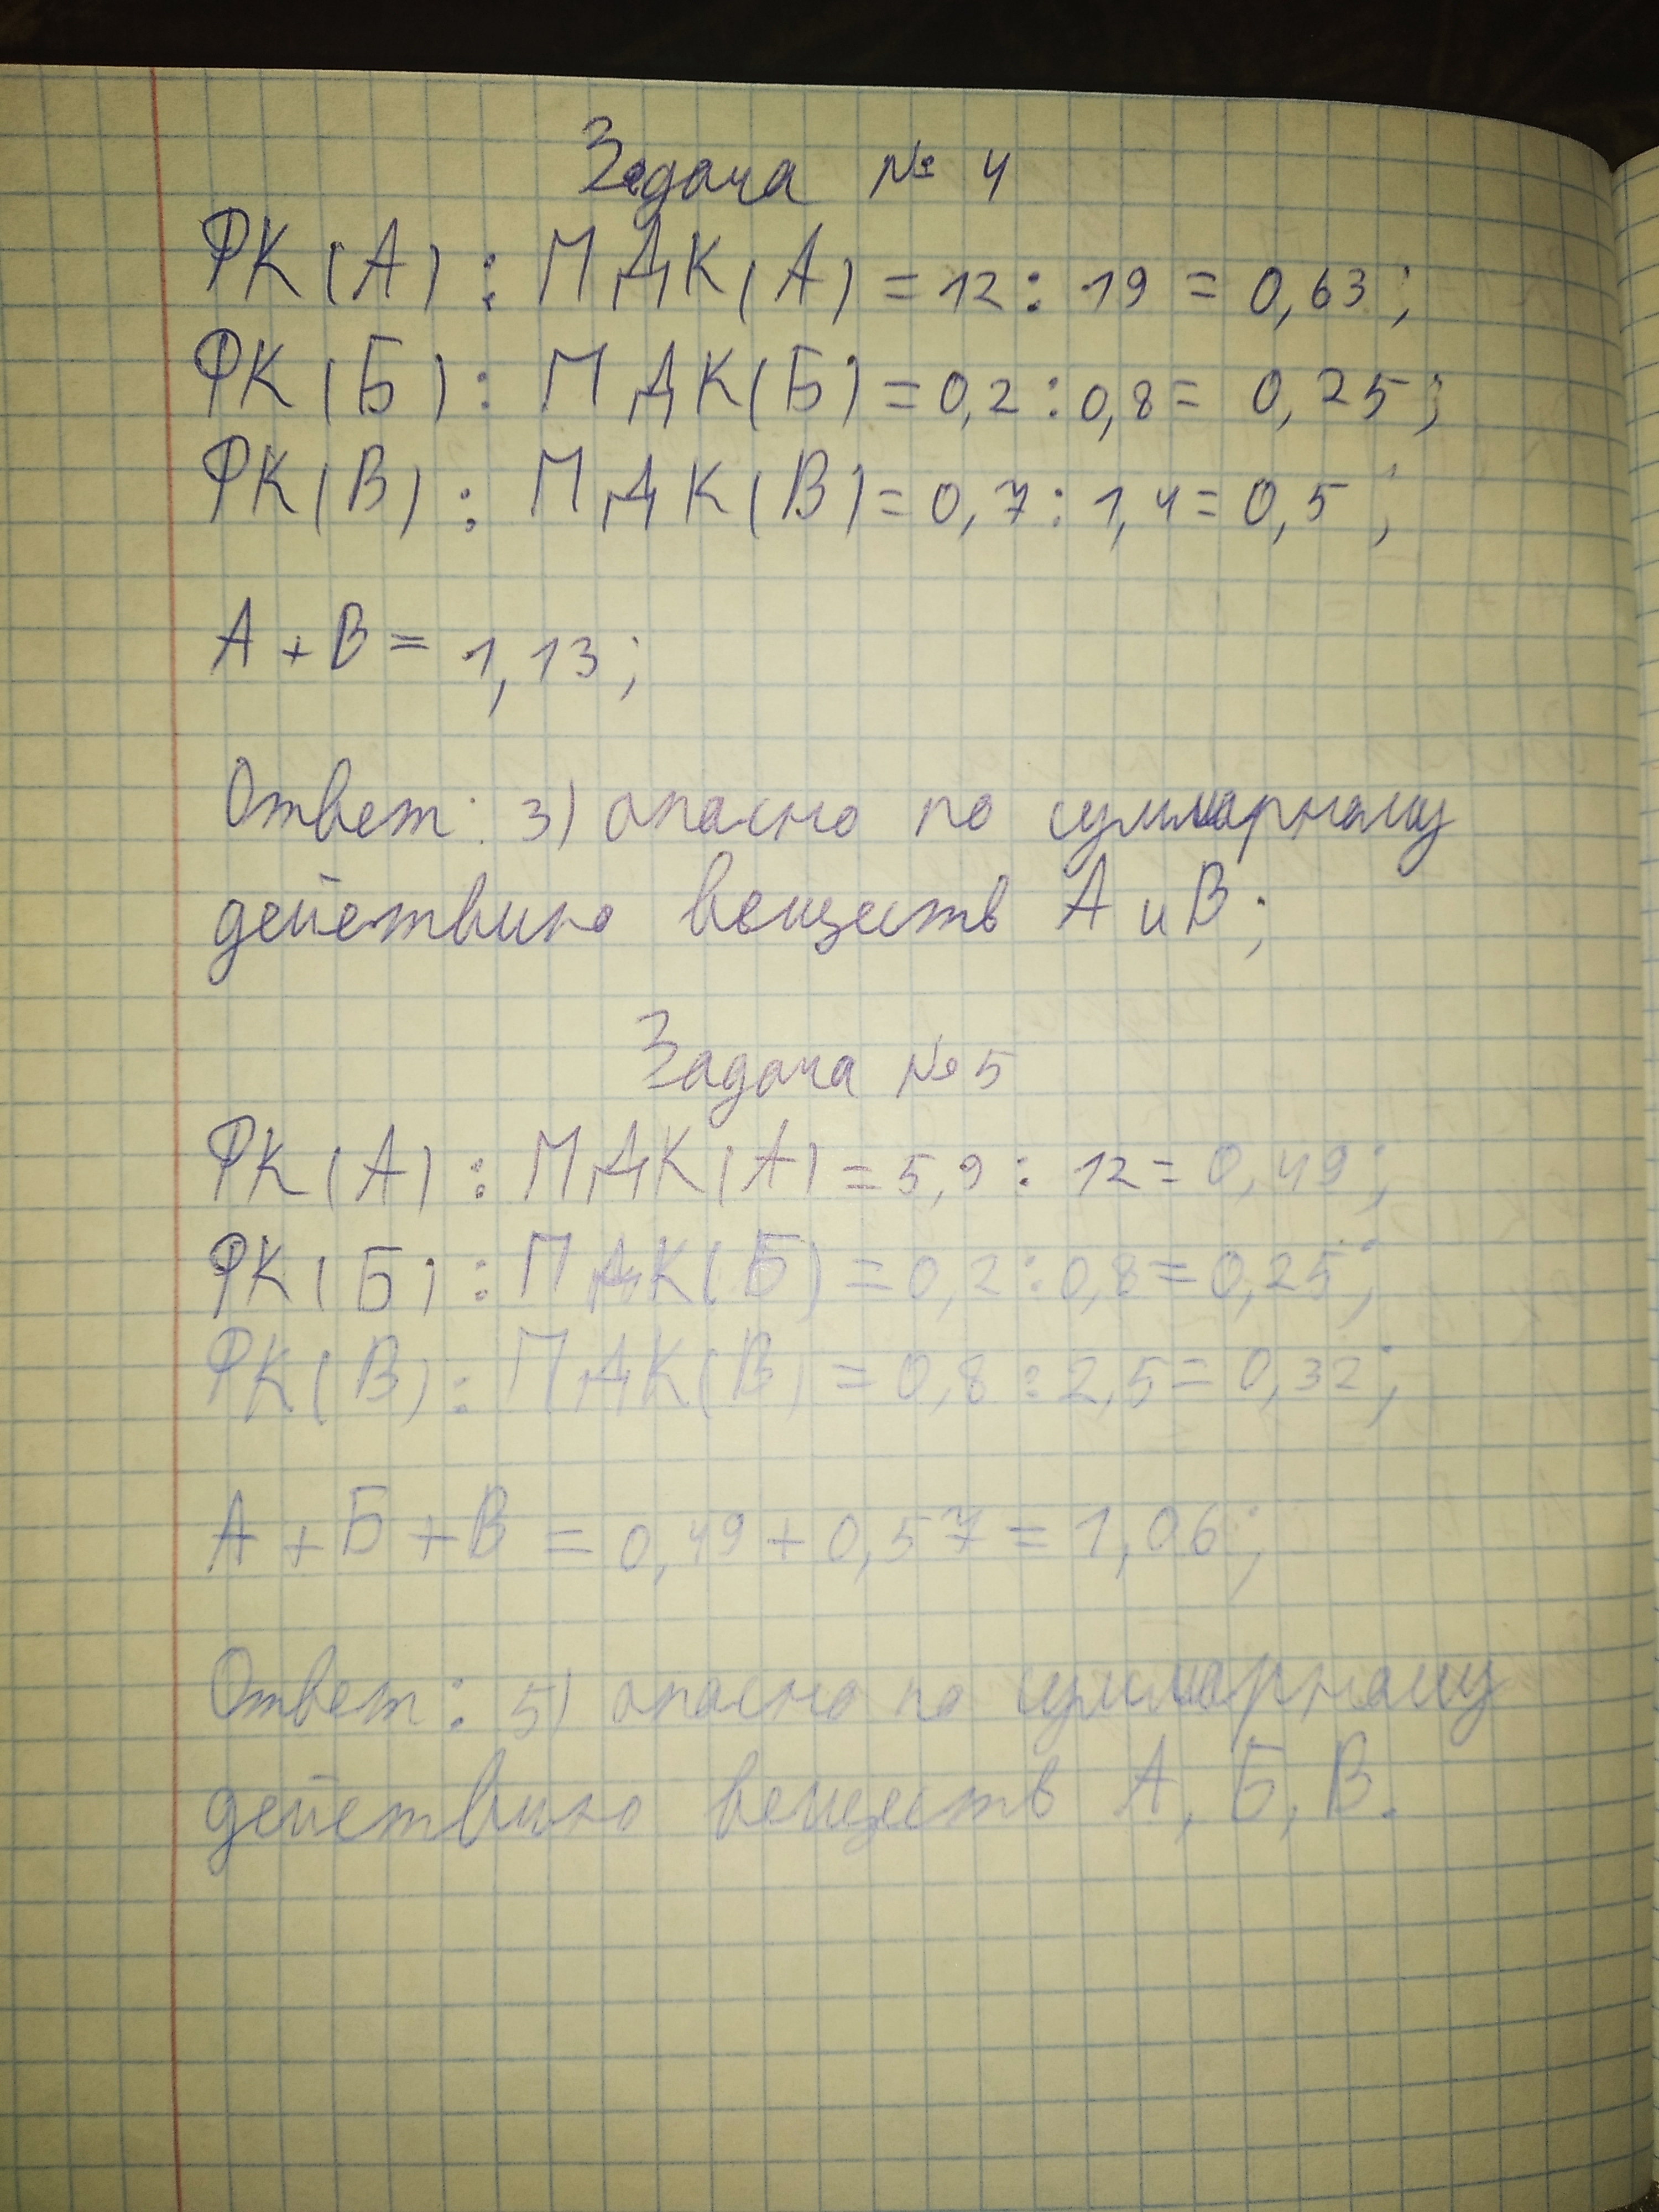 Задача № 4
РК(А) : ПДК(А) = 12 : 19 = 0,63;
РК(Б) : ПДК(Б) = 0,2 : 0,8 = 0,25;
РК(В) : ПДК(В) = 0,7 : 1,4 = 0,5;
А + В = 1,13;
Ответ: 3) опасно по суммарному
действию веществ А и В;
Задача №5
РК(А) : ПДК(А) = 5,9 : 12 = 0,49;
РК(Б) : ПДК(Б) = 0,2 : 0,8 = 0,25;
РК(В) : ПДК(В) = 0,8 : 2,5 = 0,32;
А + Б + В = 0,49 + 0,57 = 1,06;
Ответ: 5) опасно по суммарному
действию веществ А, Б, В.